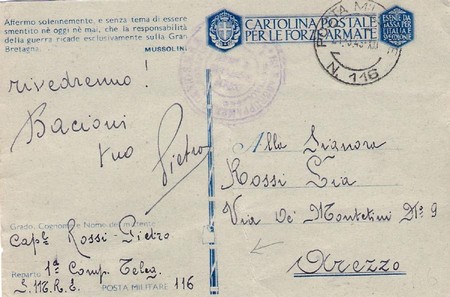 Affermo solennemente, e senza tema di essere
smentito nè oggi nè mai, che la responsabilità
della guerra ricade esclusivamente sulla Gran
Bretagna.
MUSSOLINI
CARTOLINA POSTALE
PER LE FORZE ARMATE
ESENTE DA
TASSA PER
L'ITALIA
POSTA MIL
N. 116
rivedremo!
Bacioni
tuo Pietro
Alla Signora
Rossi Lia
Via dei Montetini Nº 9
Arezzo
Grado, Cognome e Nome del mittente
Capº Rossi Pietro
Reparto 1ª Comp. Teleg.
POSTA MILITARE 116